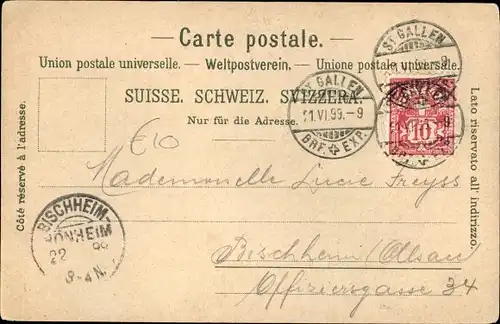 Carte postale.
Union postale universelle. — Weltpostverein. — Unione postale universale.
SUISSE. SCHWEIZ. SVIZZERA.
Nur für die Adresse.
Côté réservé à l'adresse.
Lato riservato all' indirizzo.
ST GALLEN
ST. GALLEN
VI. 99. – 9
BRF. EXP.
10
BISCHHEIM-
HÖNHEIM
22
99
3-4 N.
Mademoiselle Lucie Freyss
Bischheim (Elsass
Offiziersgasse 34